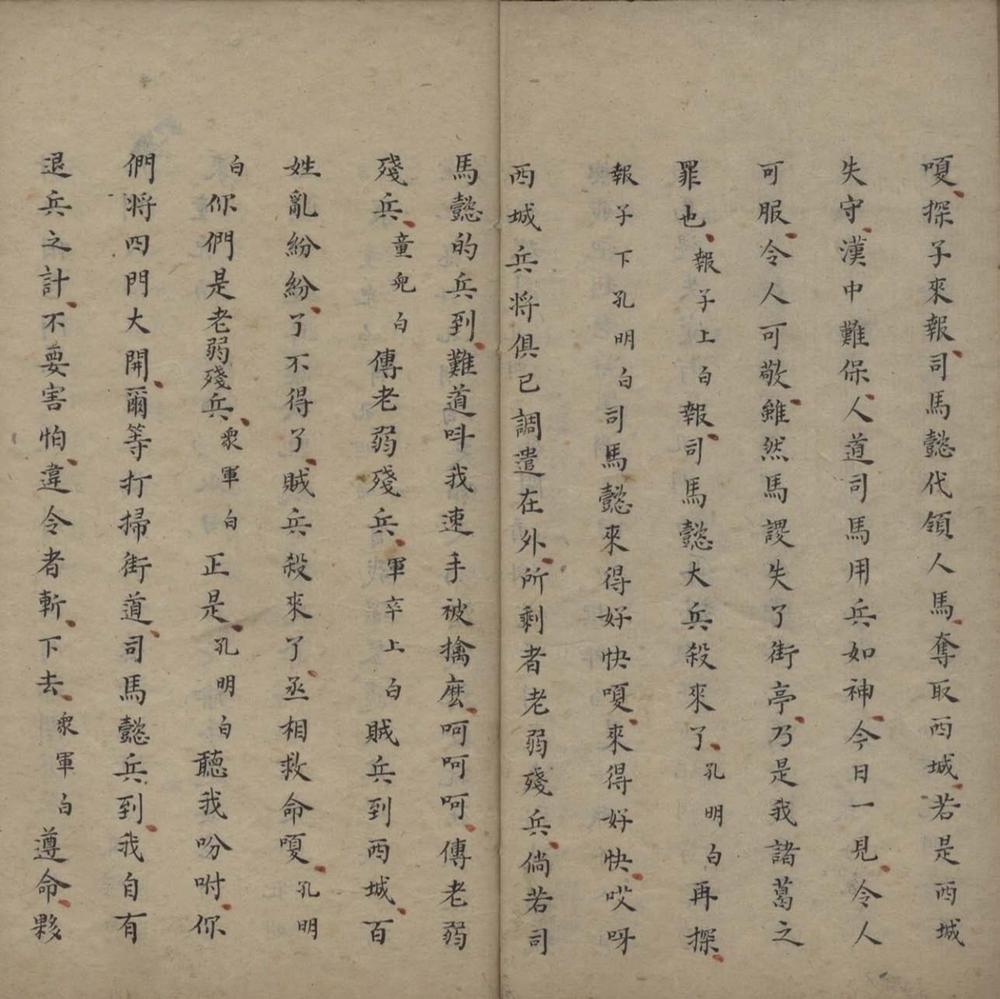 嗄探子來報司馬懿代領人馬奪取西城若是西城
失守漢中難保人道司馬用兵如神今日一見令人
可服令人可敬雖然馬謖失了街亭乃是我諸葛之
罪也報子上白報司馬懿大兵殺來了孔明白再探
報子下孔明白司馬懿來得好快嗄來得好快哎呀
西城兵將俱已調遣在外所剩者老弱殘兵倘若司
馬懿的兵到難道呌我速手被擒麽呵呵呵傳老弱
殘兵童兒白傳老弱殘兵軍卒上白賊兵到西城百
姓亂紛紛了不得了賊兵殺來了丞相救命嗄孔明
白你們是老弱殘兵衆軍白正是孔明白聽我吩咐你
們將四門大開爾等打掃街道司馬懿兵到我自有
退兵之計不要害怕違令者斬下去衆軍白遵命夥